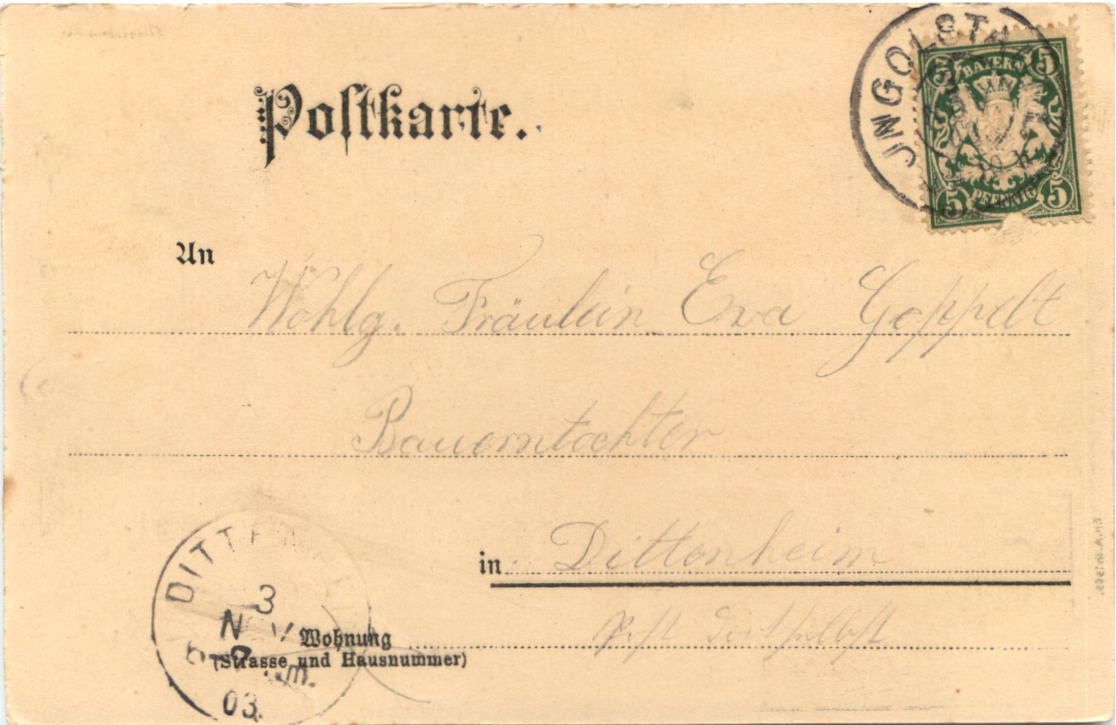 Postkarte.
JNGOLSTA
BAYERN
5 5
5 PFENNIG 5
An Wohlg. Fräulein Eva Goppelt
Bauerntochter
in Dittenheim
Post daselbst
Wohnung
(Strasse und Hausnummer)
DITTEN
3
NOV
03.